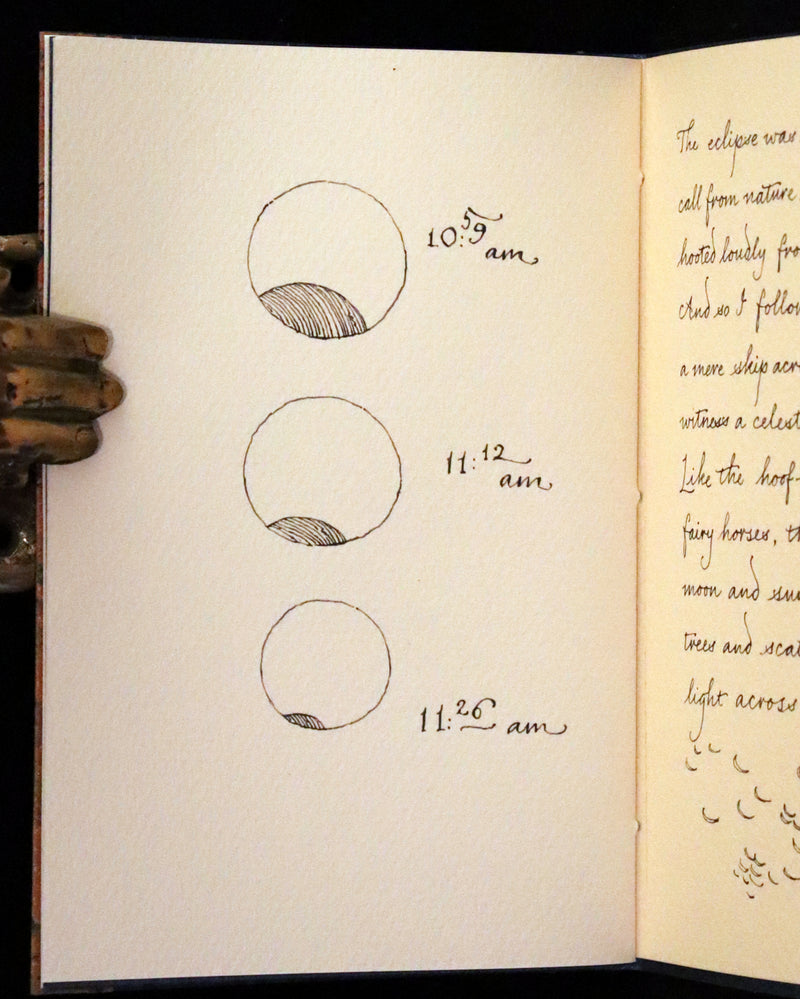 10:59 am
11:12 am
11:26 am
The eclipse was
call from nature
hooted loudly fro
And so I follow
a mere skip acr
witness a celest
Like the hoof-
fairy horses, th
moon and sun
trees and scat
light across